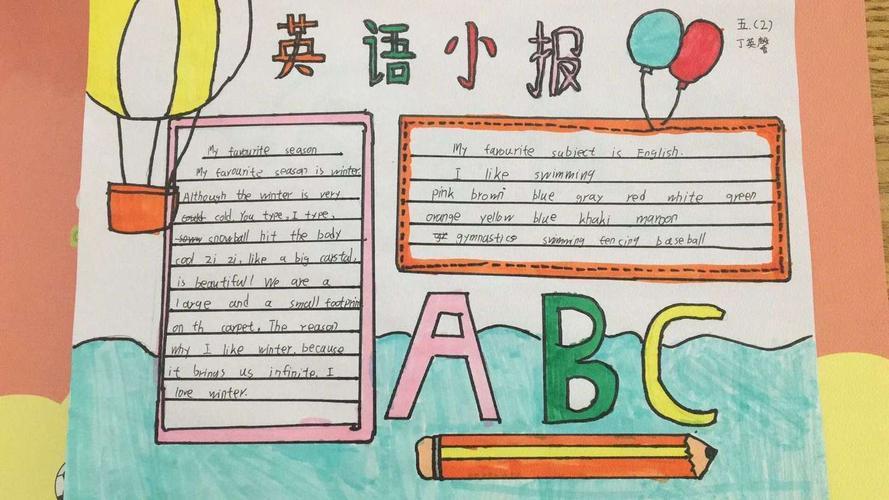 英语小报
五.(2)
丁英馨
My favourite season
My favourite season is winter.
Although the winter is very
cold. You type, I type,
snowball hit the body
cool zi zi, like a big carstal,
is beautiful! We are a
large and a small footprin
on th carpet. The reason
why I like winter. because
it brings us infinite. I
love winter.
My favourite subject is English.
I like swimming
pink brown blue gray red white green
orange yellow blue khaki maroon
gymnastics swmming fencing baseball
ABC